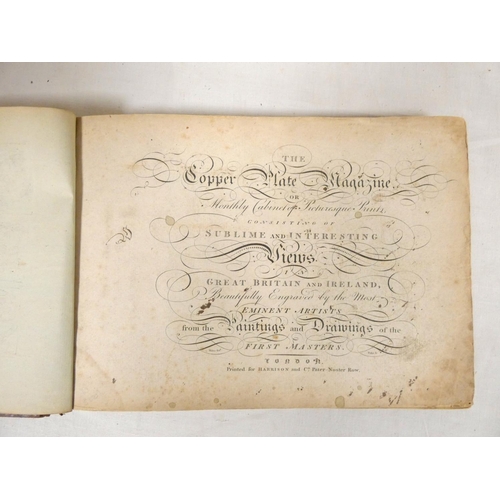 THE
Copper Plate Magazine,
OR
Monthly Cabinet of Picturesque Prints,
CONSISTING OF
SUBLIME AND INTERESTING
Views
IN
GREAT BRITAIN AND IRELAND,
Beautifully Engraved by the Most
EMINENT ARTISTS
from the Paintings and Drawings of the
FIRST MASTERS.
LONDON.
Printed for HARRISON and Co. Pater Noster Row.